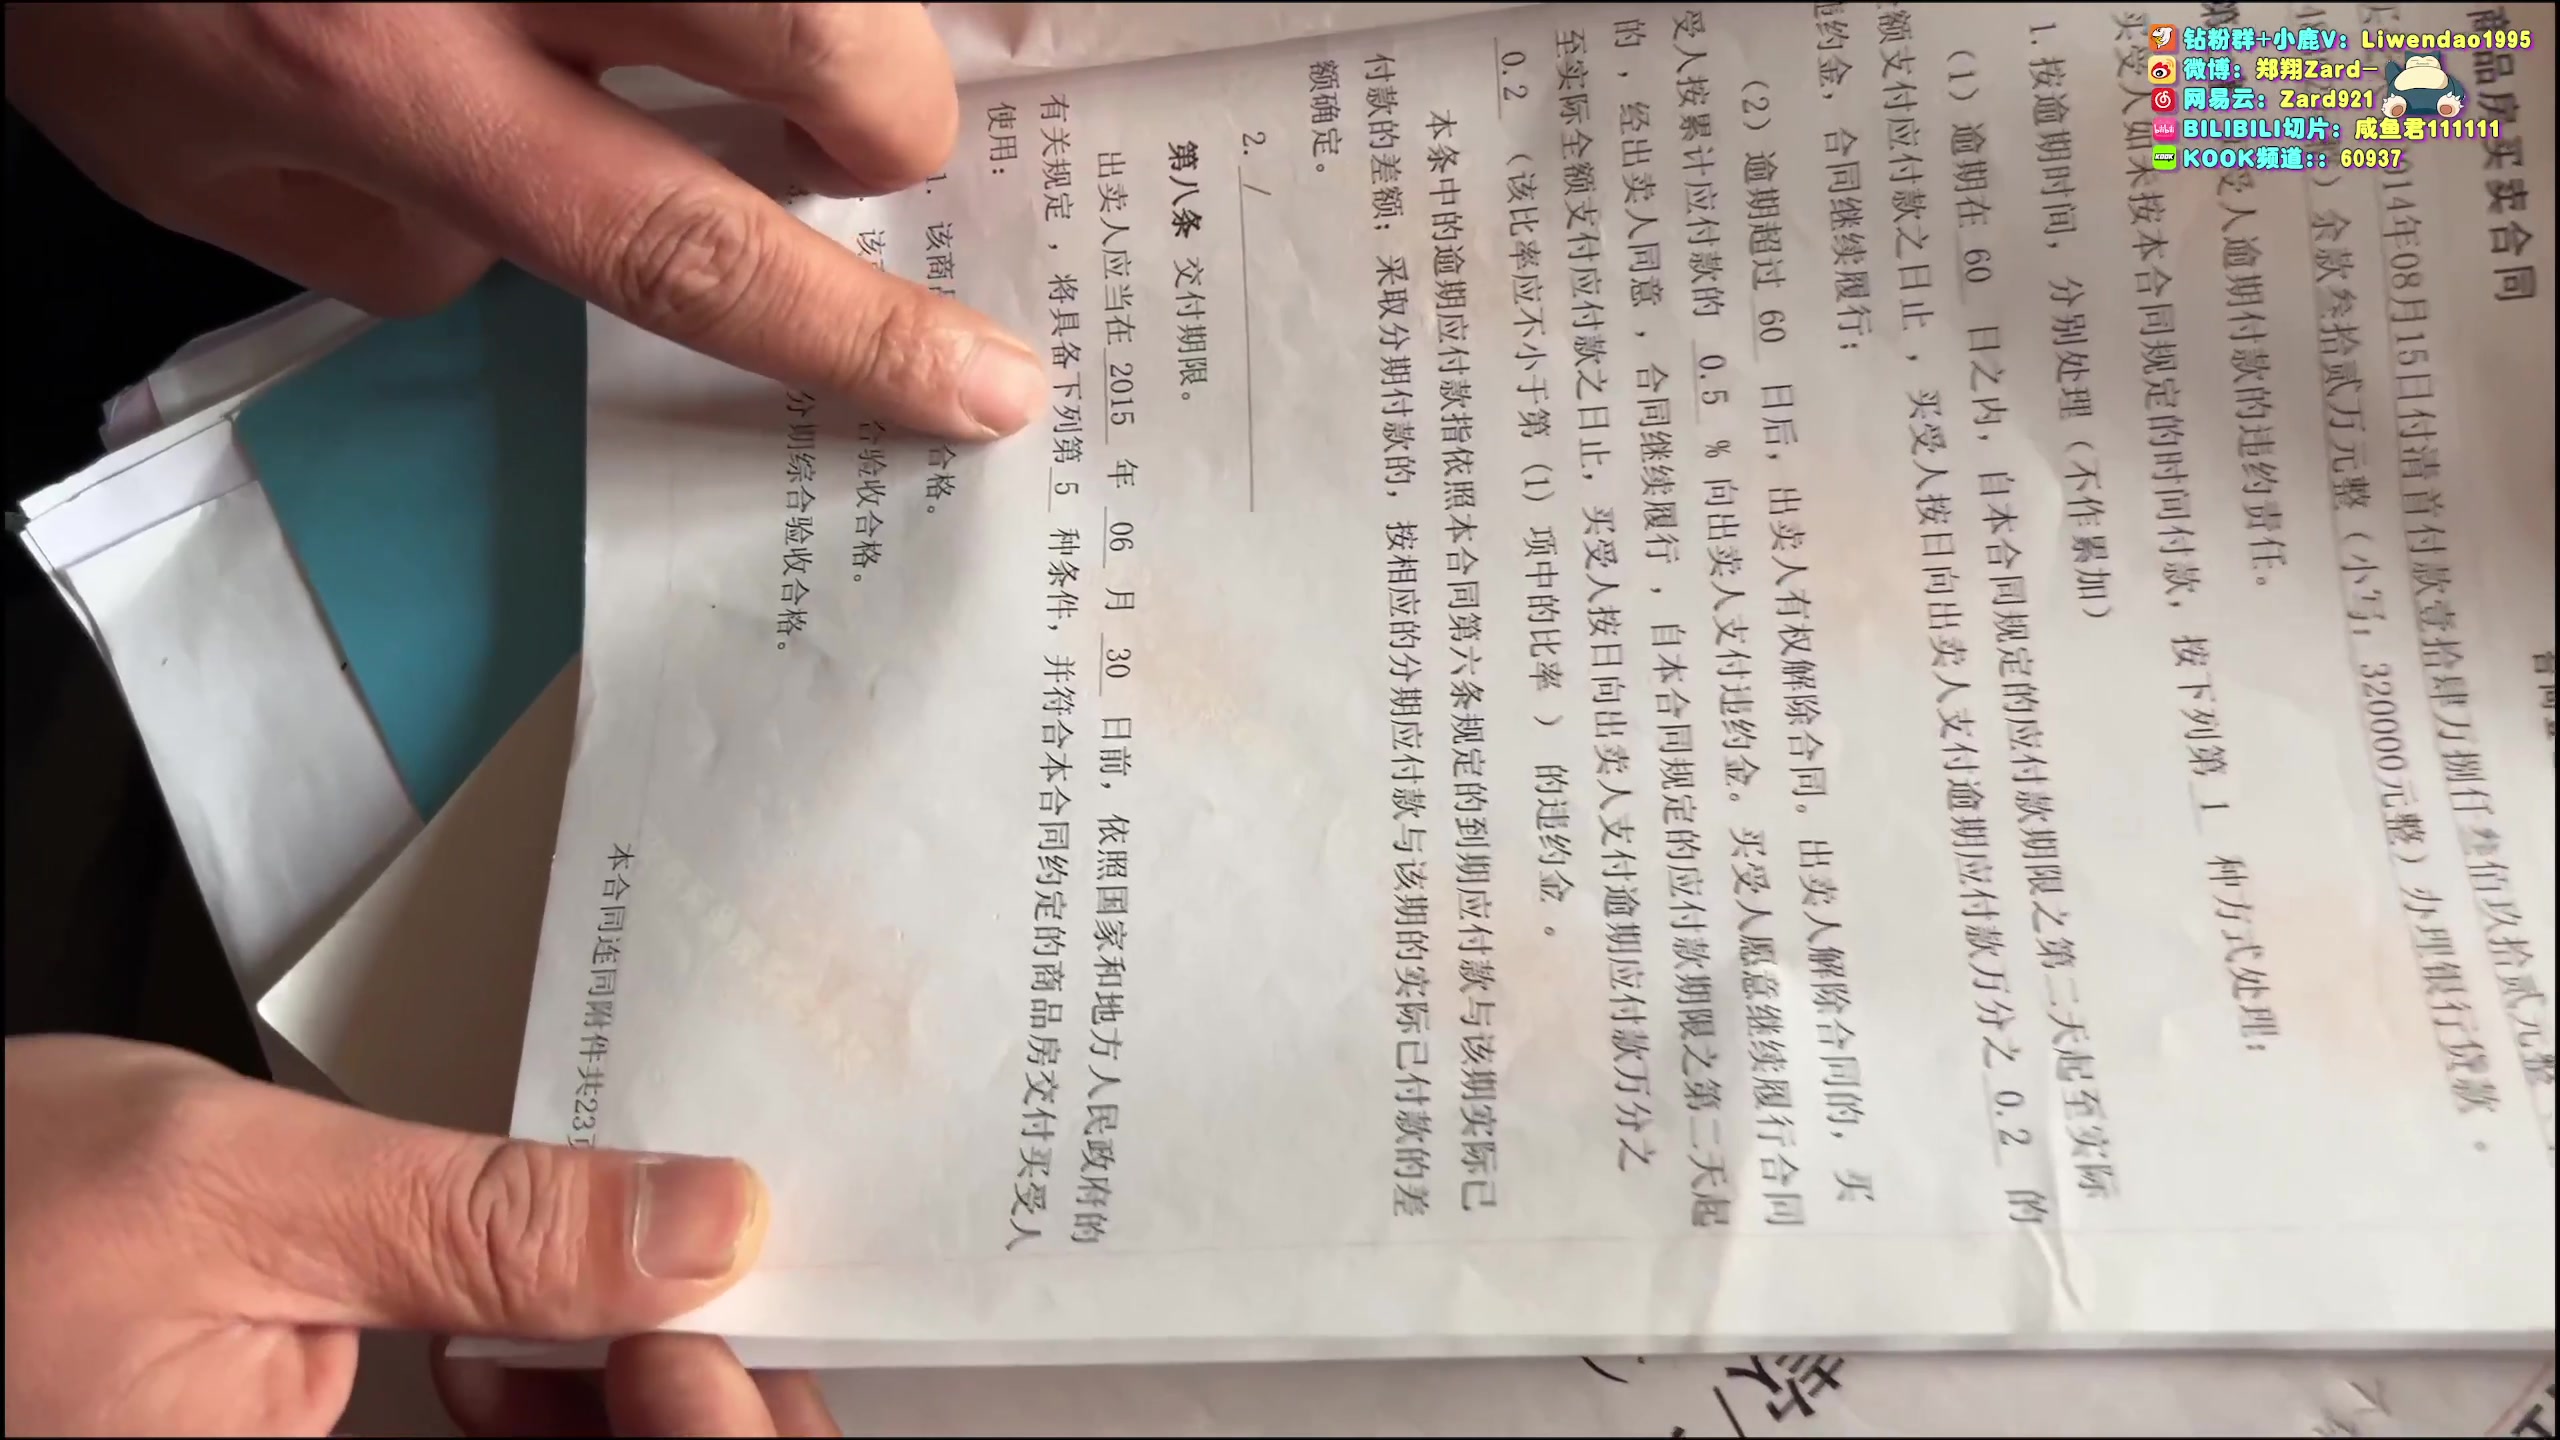 钻粉群+小鹿V：Liwendao1995
微博：郑翔Zard-
网易云：Zard921
BILIBILI切片：咸鱼君111111
KOOK频道：：60937
商品房买卖合同
014年08月15日付清首付款壹拾肆万捌仟叁佰玖拾贰元整
）余款叁拾贰万元整（小写：320000元整）办理银行贷款。
受人逾期付款的违约责任。
买受人如未按本合同规定的时间付款，按下列第 1 种方式处理：
1.按逾期时间，分别处理（不作累加）
（1）逾期在 60 日之内，自本合同规定的应付款期限之第二天起至实际
额支付应付款之日止，买受人按日向出卖人支付逾期应付款万分之 0.2 的
违约金，合同继续履行；
（2）逾期超过 60 日后，出卖人有权解除合同。出卖人解除合同的，买
受人按累计应付款的 0.5 % 向出卖人支付违约金。买受人愿意继续履行合同
的，经出卖人同意，合同继续履行，自本合同规定的应付款期限之第二天起
至实际全额支付应付款之日止，买受人按日向出卖人支付逾期应付款万分之
0.2 （该比率应不小于第（1）项中的比率 ）的违约金 。
本条中的逾期应付款指依照本合同第六条规定的到期应付款与该期实际已
付款的差额；采取分期付款的，按相应的分期应付款与该期的实际已付款的差
额确定。
2. /
第八条 交付期限。
出卖人应当在 2015 年 06 月 30 日前，依照国家和地方人民政府的
有关规定，将具备下列第 5 种条件，并符合本合同约定的商品房交付买受人
使用：
1. 该商品 合格。
该 合验收合格。
分期综合验收合格。
本合同连同附件共23页